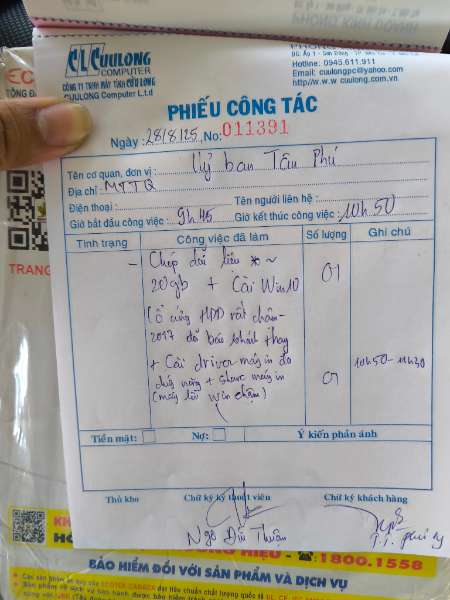 CL CUULONG
COMPUTER
CÔNG TY TNHH MÁY TÍNH CỬU LONG
CUULONG Computer L.t.d
Hotline: 0945.611.911
Email: cuulongpc@yahoo.com
http://www.w w w cuulong.com.vn
PHIẾU CÔNG TÁC
Ngày: 28/8/25 No: 011391
Tên cơ quan, đơn vị: Uỷ ban Tân Phú
Địa chỉ: MTTQ
Điện thoại: Tên người liên hệ:
Giờ bắt đầu công việc: 9h45 Giờ kết thúc công việc: 10h50
Tình trạng Công việc đã làm Số lượng Ghi chú
- Chép dữ liệu
20gb + Cài Win10 01
(ổ cứng HDD rất chậm
2017 đã báo khách thay
+ Cài driver máy in đa 10h50-11h30
chức năng + share máy in 01
(máy lỗi win chậm)
Tiền mặt: Nợ: Ý kiến phản ánh
Thủ kho Chữ ký kỹ thuật viên Chữ ký khách hàng
Ngô Đức Thuận
EC
TỔNG ĐÀ
TRANG
KH
HO
HIỆU - 1800.1558
BẢO HIỂM ĐỐI VỚI SẢN PHẨM VÀ DỊCH VỤ